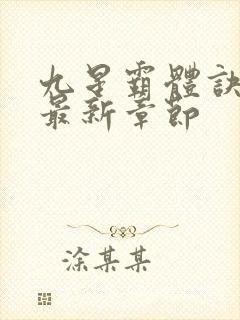 九星霸體訣
最新章節
涂某某